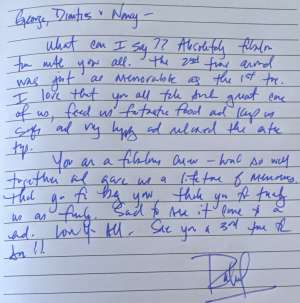 George, Dimitris & Nancy -
What can I say?? Absolutely fabulous
you all. The 2nd time around
was just as memorable as the 1st
I love that you all take such great care
of us, feed us fantastic food and keep us
safe and very happy and relaxed the entire
trip.
You are a fabulous crew - work so well
together and gave us a lifetime of memories
that go big you. Thank you for treating
us as family. Sad to see it come to a
end. Love you All. See you a 3rd time
!!